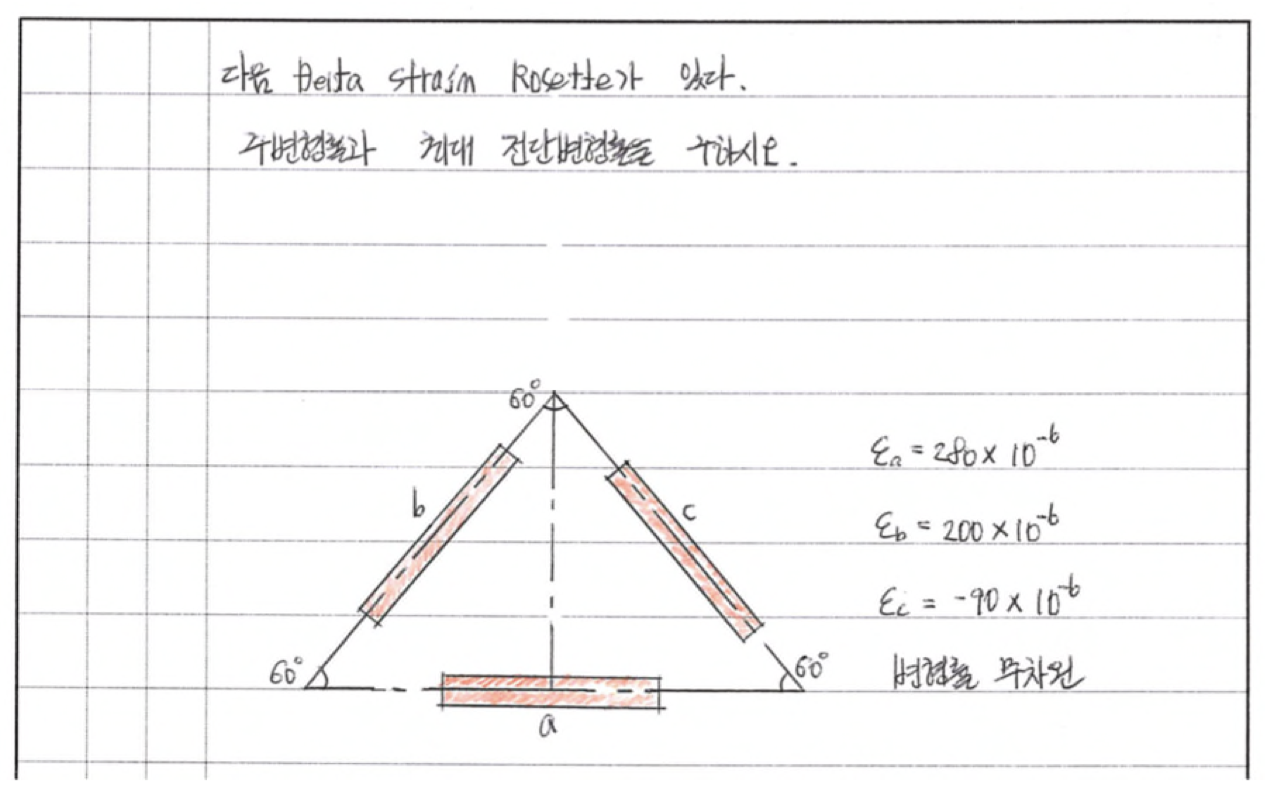 다음 Delta strain Rosette가 있다.
주변형률과 최대 전단변형률을 구하시오.
60°
b
c
60°
60°
a
εa = 280 × 10^-6
εb = 200 × 10^-6
εc = -90 × 10^-6
변형률 무차원